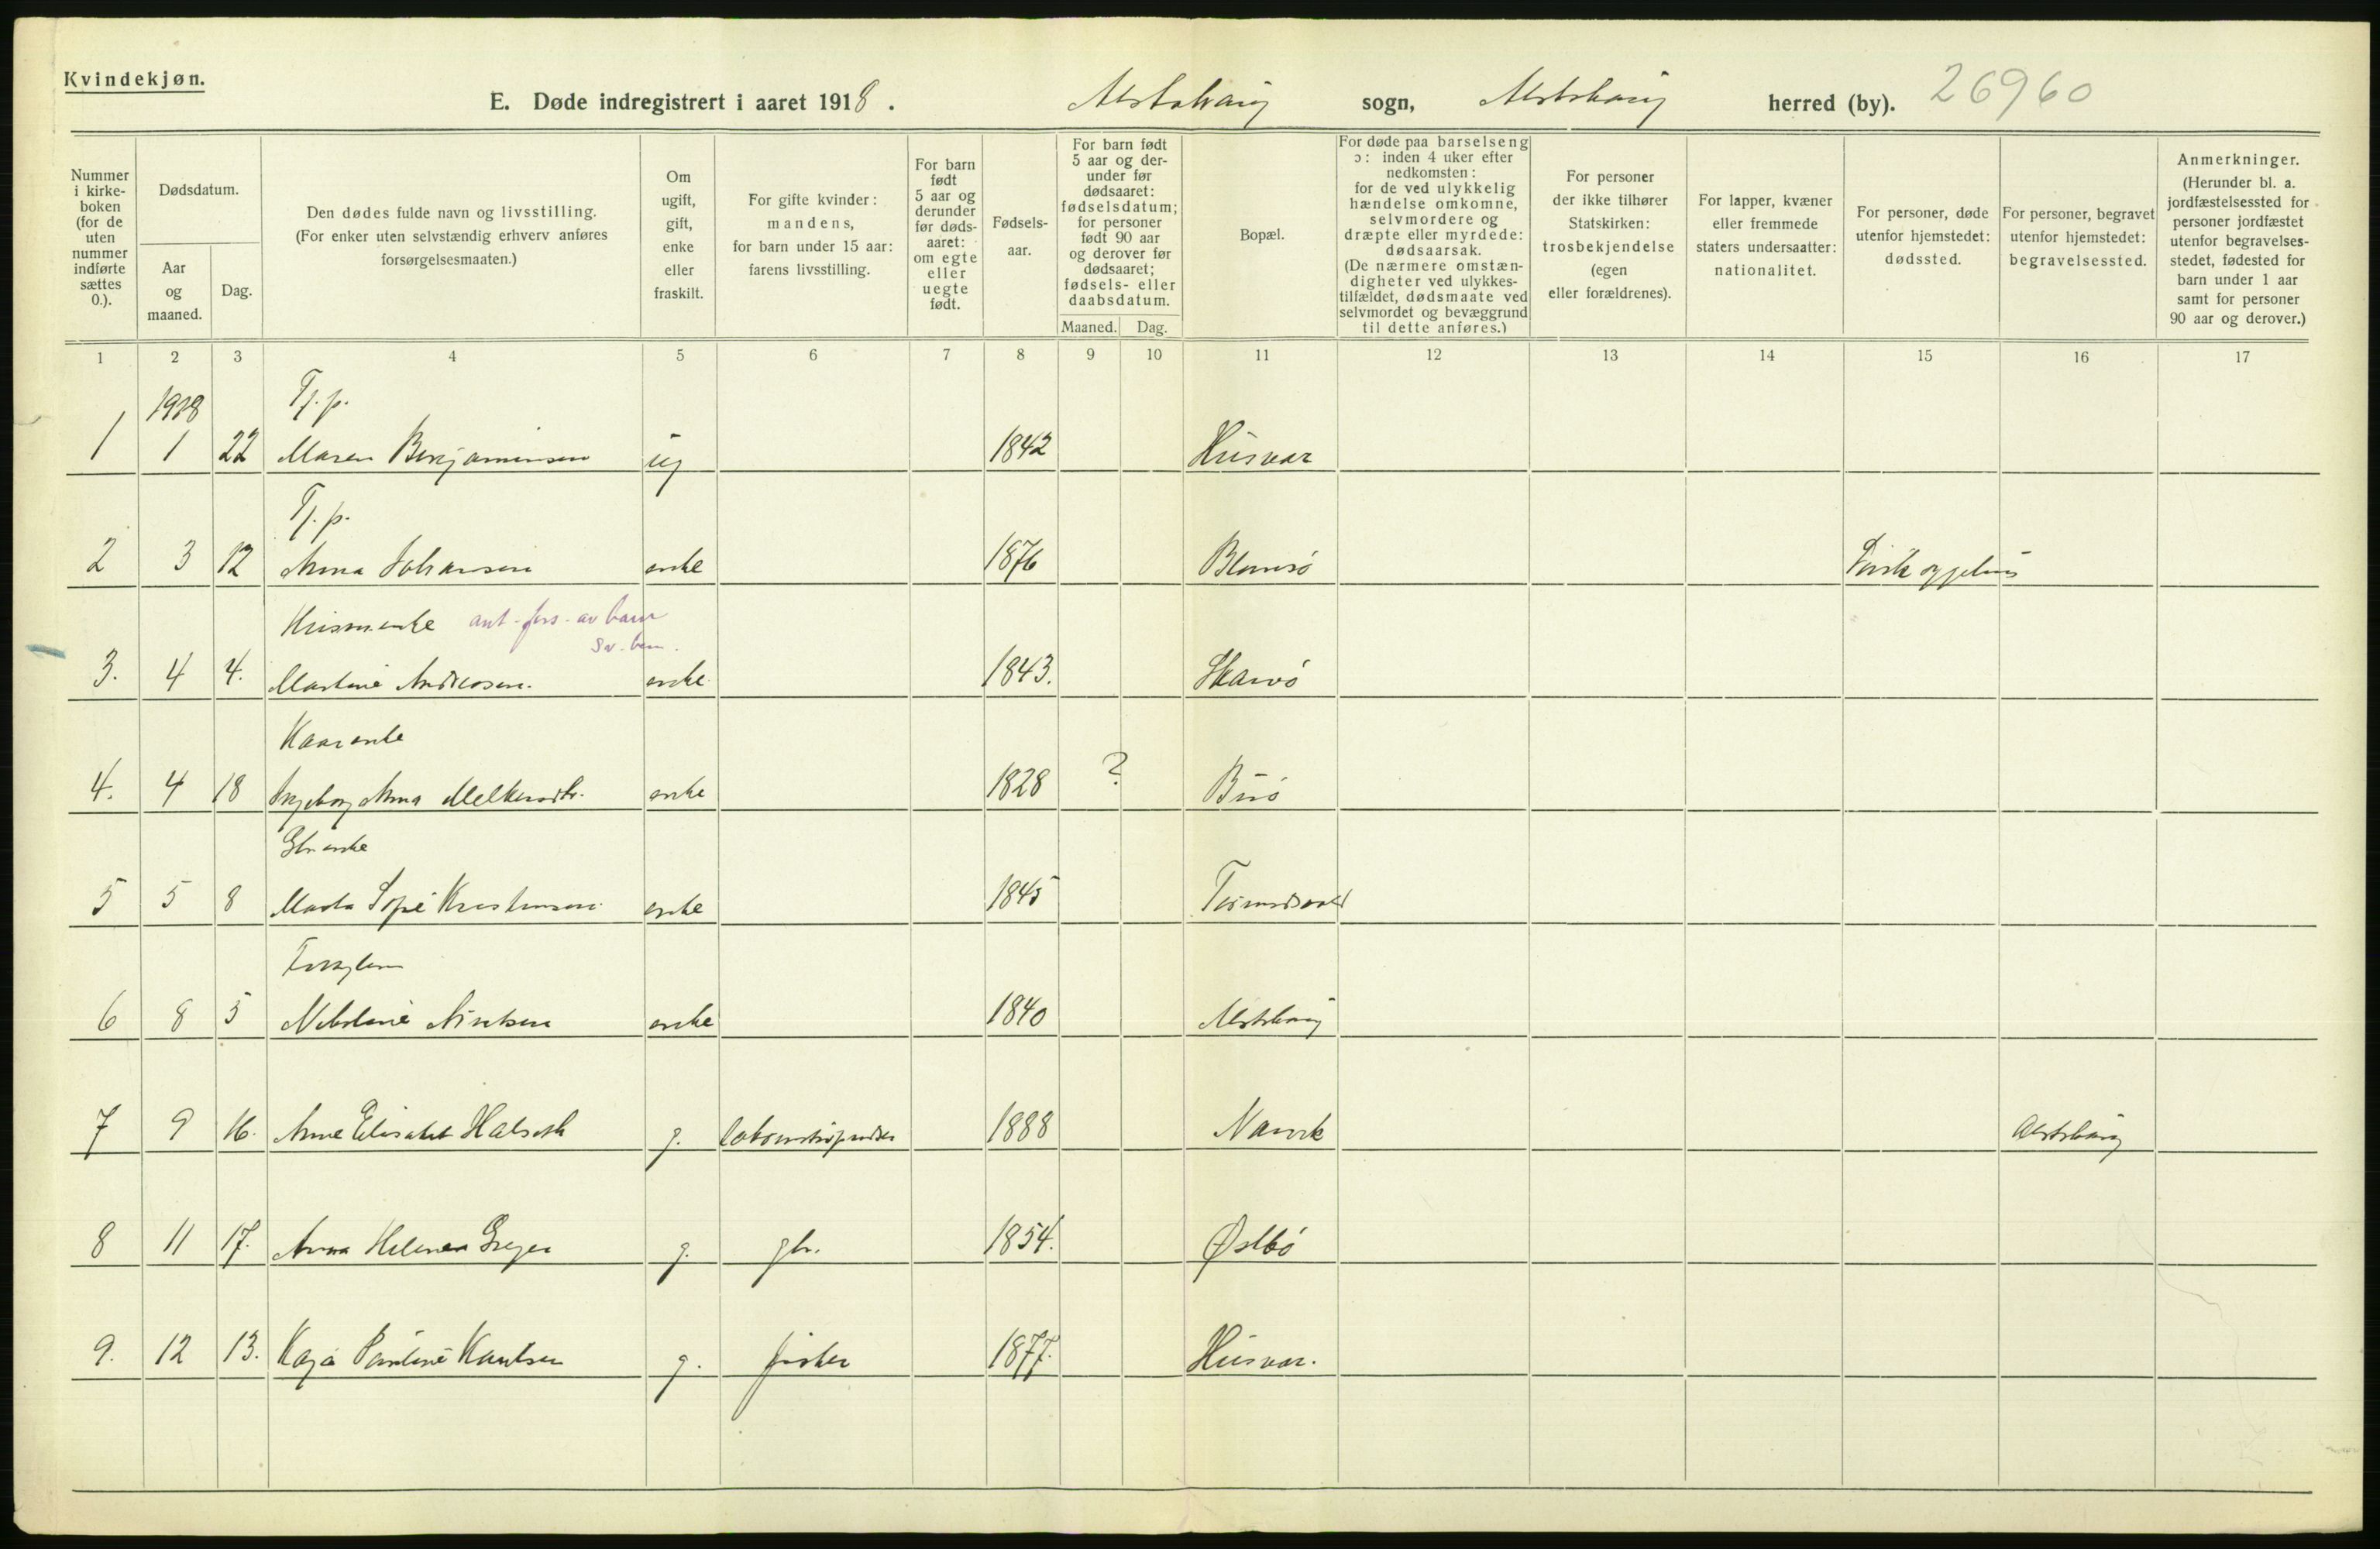 Kvindekjøn.
E. Døde indregistrert i aaret 1918. Alstahaug sogn, Alstahaug herred (by). 26960
Nummer i kirke-boken (for de uten nummer indførte sættes 0.).
Dødsdatum.
Aar og maaned.
Dag.
Den dødes fulde navn og livsstilling. (For enker uten selvstændig erhverv anføres forsørgelsesmaaten.)
Om ugift, gift, enke eller fraskilt.
For gifte kvinder: mandens, for barn under 15 aar: farens livsstilling.
For barn født 5 aar og derunder før døds-aaret: om egte eller uegte født.
Fødsels-aar.
For barn født 5 aar og der-under før dødsaaret: fødselsdatum; for personer født 90 aar og derover før dødsaaret; fødsels- eller daabsdatum.
Maaned. Dag.
Bopæl.
For døde paa barselseng ɔ: inden 4 uker efter nedkomsten: for de ved ulykkelig hændelse omkomne, selvmordere og dræpte eller myrdede: dødsaarsak. (De nærmere omstæn-digheter ved ulykkes-tilfældet, dødsmaate ved selvmordet og bevæggrund til dette anføres.)
For personer der ikke tilhører Statskirken: trosbekjendelse (egen eller forældrenes).
For lapper, kvæner eller fremmede staters undersaatter: nationalitet.
For personer, døde utenfor hjemstedet: dødssted.
For personer, begravet utenfor hjemstedet: begravelsessted.
Anmerkninger. (Herunder bl. a. jordfæstelsessted for personer jordfæstet utenfor begravelses-stedet, fødested for barn under 1 aar samt for personer 90 aar og derover.)
1 2 3 4 5 6 7 8 9 10 11 12 13 14 15 16 17
1918 Tj.p.
1 1 22 Maren Benjaminsen ug 1842 Husvær
Tj.p.
2 3 12 Anna Johansen enke 1876 Blomsö
Husm.enke ant. fors. av barn
3. 4 4. Martine Andreasen. enke 1843. Skarvö
Kaarenke
4. 4 18 Ingeborg Anna enke 1828 ? Buö
Gbr enke
5 5 8 Marta Kristensen enke 1845
6 8 5 enke 1840 Alstahaug
7 9 16. Anne Elisabet Halseth g. 1888 Narvik Alstahaug
8 11 17. Anna Helena g. gbr. 1854. Östbö
9. 12 13. Kaja Pauline Karlsen g. fisker 1877. Husvær.